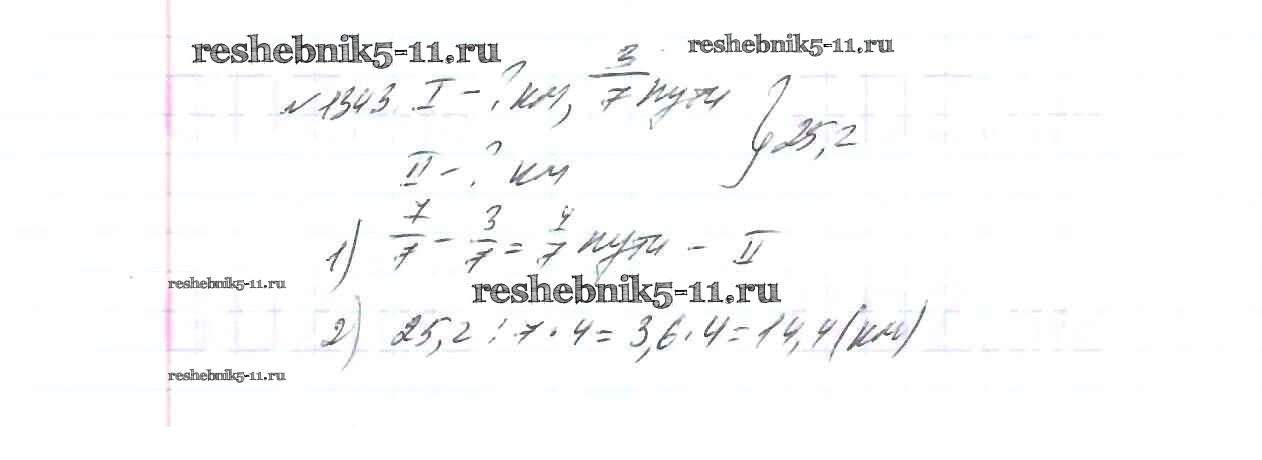 reshebnik5-11.ru reshebnik5-11.ru
№1343. I - ? км, 3/7 пути } 25,2
II - ? км
1) 7/7 - 3/7 = 4/7 пути - II
reshebnik5-11.ru
reshebnik5-11.ru
2) 25,2 : 7 · 4 = 3,6 · 4 = 14,4 (км)
reshebnik5-11.ru